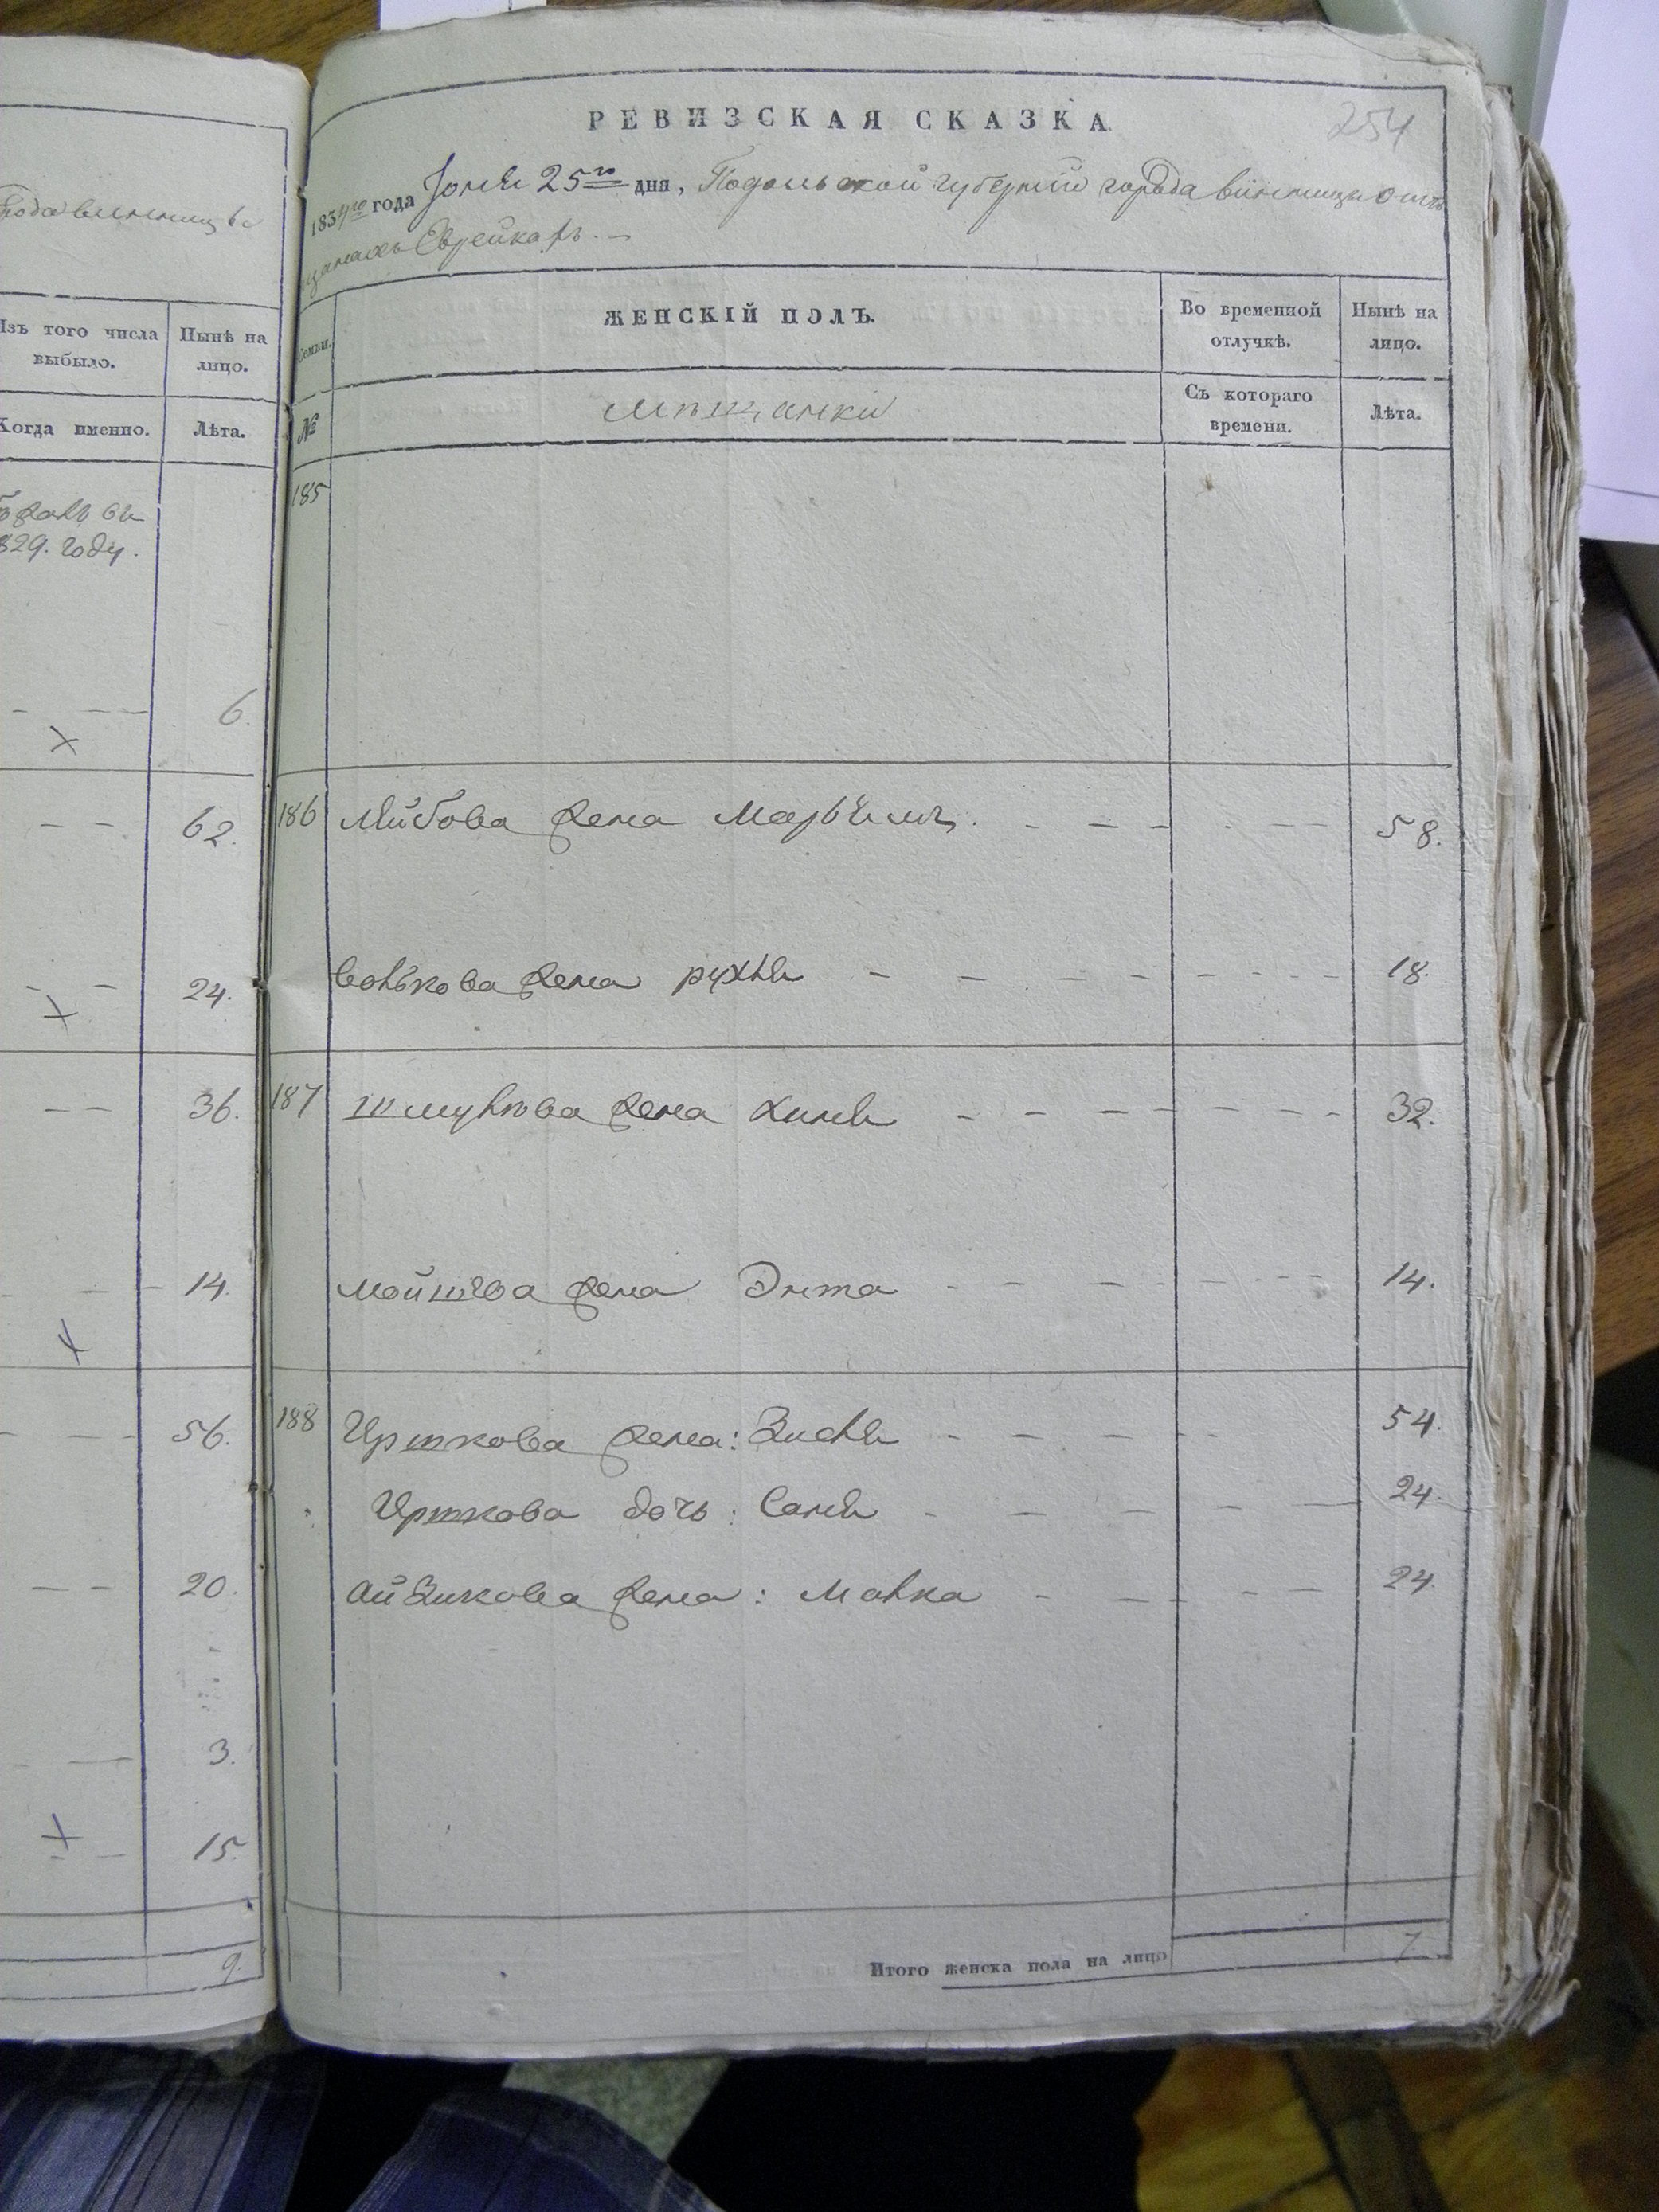 ода винницы
Изъ того числа выбыло.
Нынѣ на лицо.
Когда именно.
Лѣта.
829. году.
6.
62.
24.
36.
14.
56.
20.
3.
15.
9.
254
РЕВИЗСКАЯ СКАЗКА.
1834го года Іюня 25го дня, Подольской губерніи города винницы о мѣ
щанахъ Еврейкахъ. —
Семьи.
ЖЕНСКІЙ ПОЛЪ.
Во временной отлучкѣ.
Нынѣ на лицо.
№
мѣщанки
Съ котораго времени.
Лѣта.
185
186 Лейбова жена 58.
Волькова жена рухля 18.
187 Шмулкова жена 32.
Мойшова жена Энта 14.
188 Иршкова жена: Зисля 54.
Иршкова дочь: Саня 24.
Айзикова жена: Малка 24.
Итого женска пола на лицо 7.